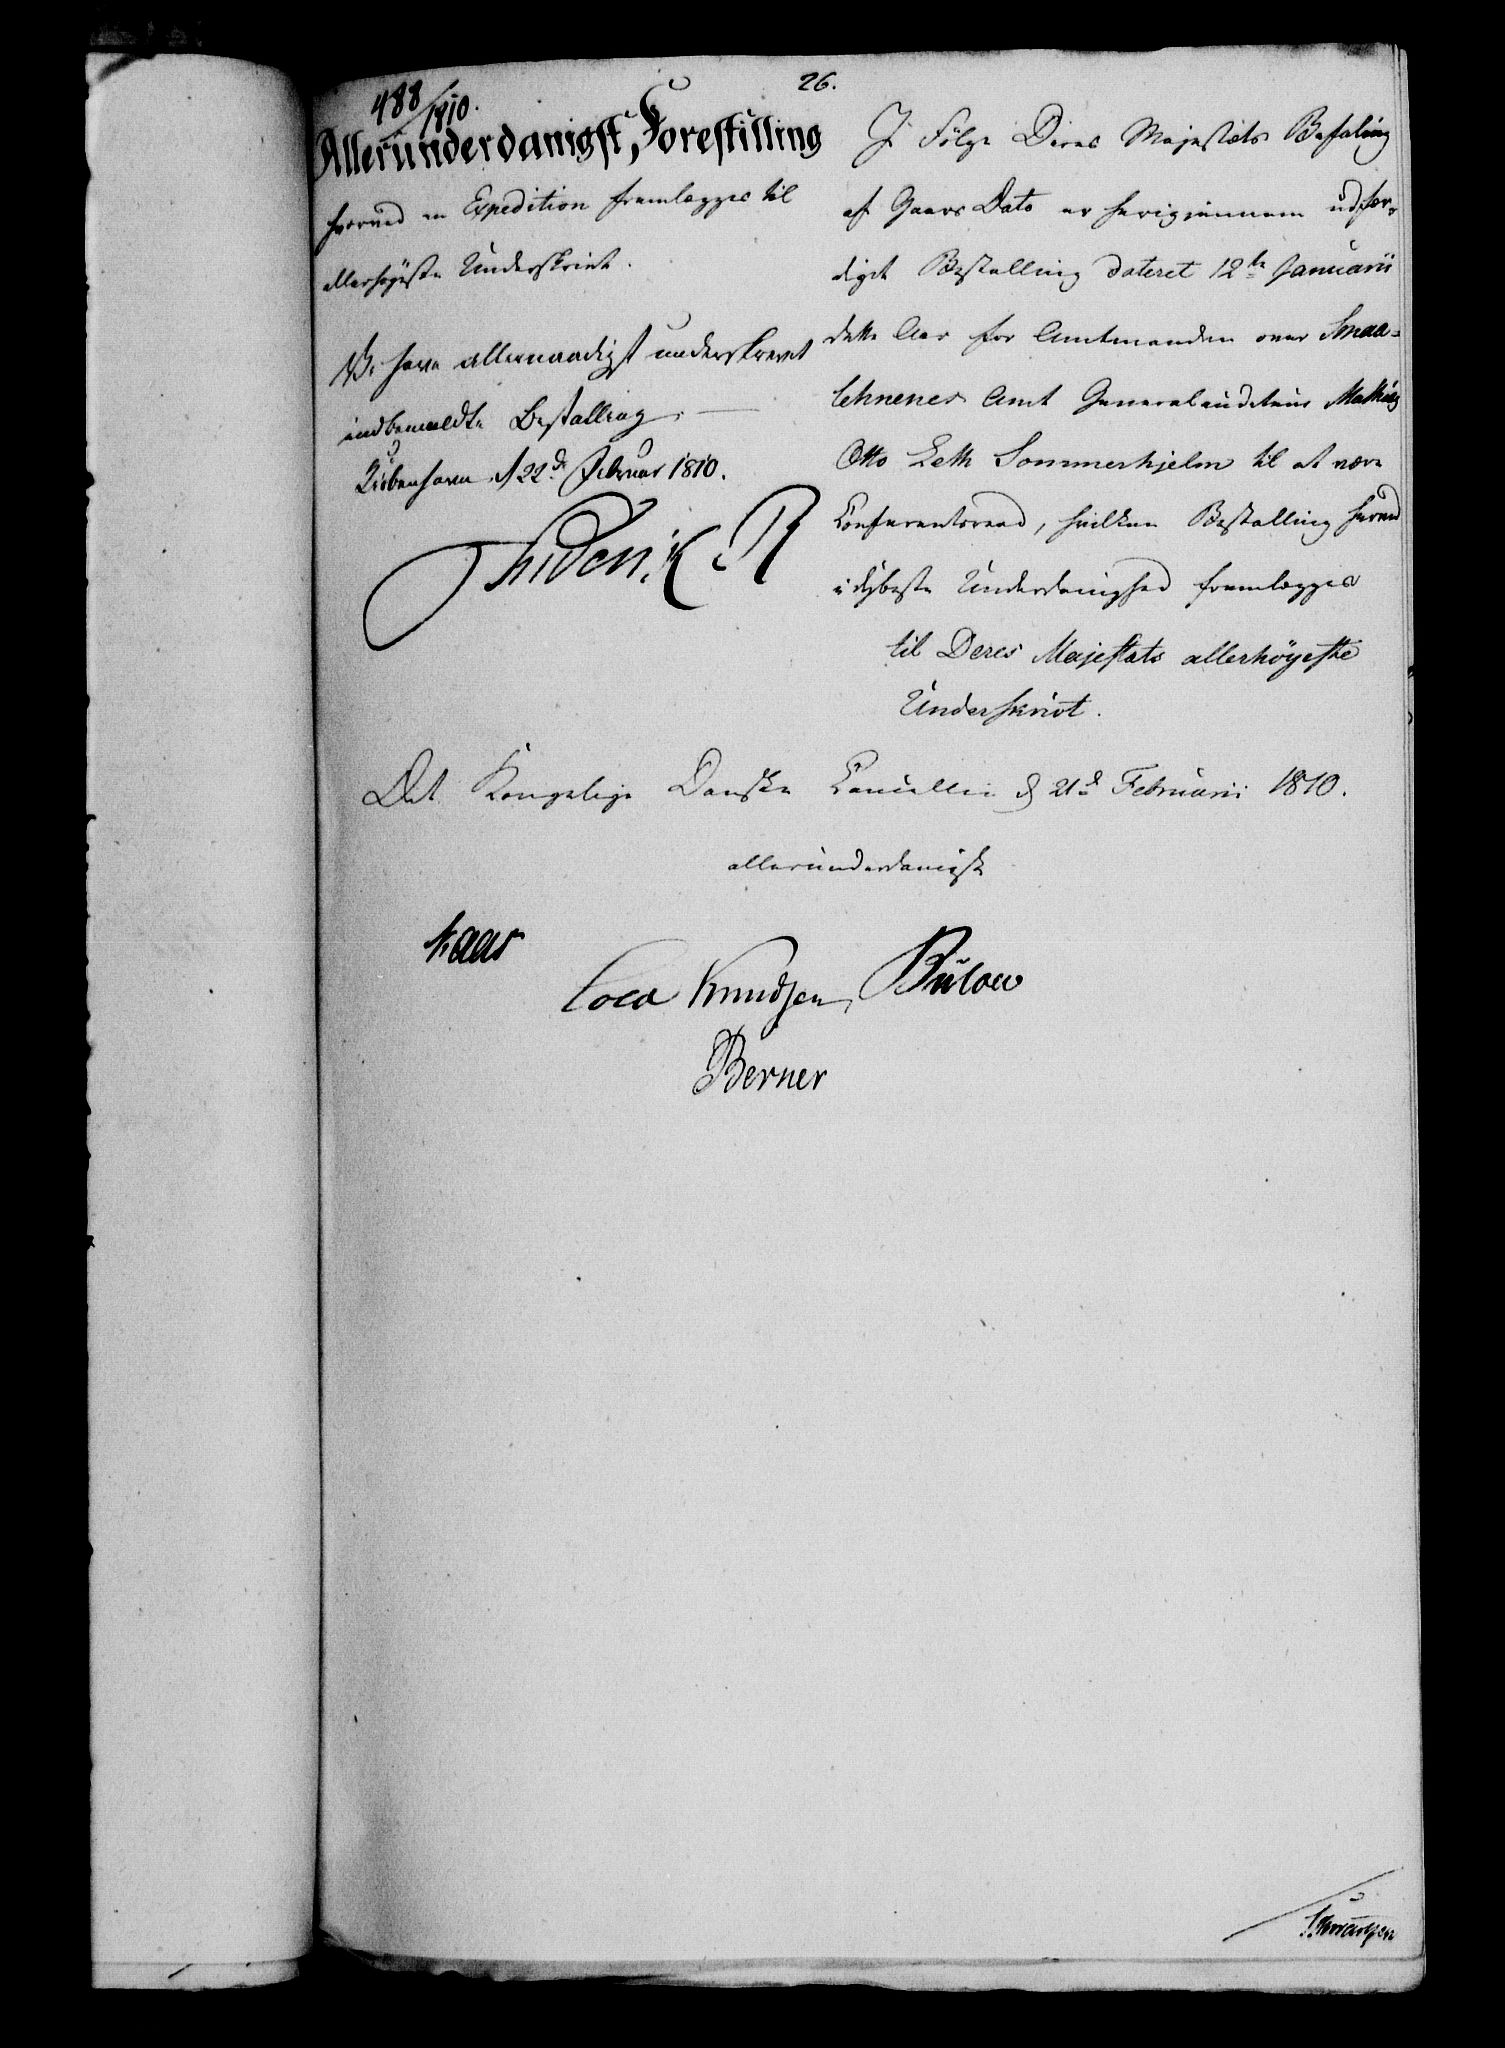 488/1810.
26.
Allerunderdanigst Forestilling
hvorved en Expedition fremlægges til
allerhøyeste Underskrivt.
Vi have allernaadigst underskrevet
indbemeldte Bestalling. —
Kiøbenhavn d 22de Februar 1810.
Friderik R
I Følge Deres Majestæts Befaling
af Gaars Dato er herigiennem udfær-
diget Bestalling dateret 12te Januarii
dette Aar for Amtmanden over Smaa-
lehnenes Amt Generalauditeur Mathias
Otto Leth Sommerhjelm til at være
Conferentsraad, hvilken Bestalling herved
i dybeste Underdanighed fremlægges
til Deres Majestæts allerhöyeste
Underskrivt.
Det Kongelige Danske Cancellie d 21de Februarii 1810.
allerunderdanigst
Kaas
Cold Knudsen Bülow
Berner